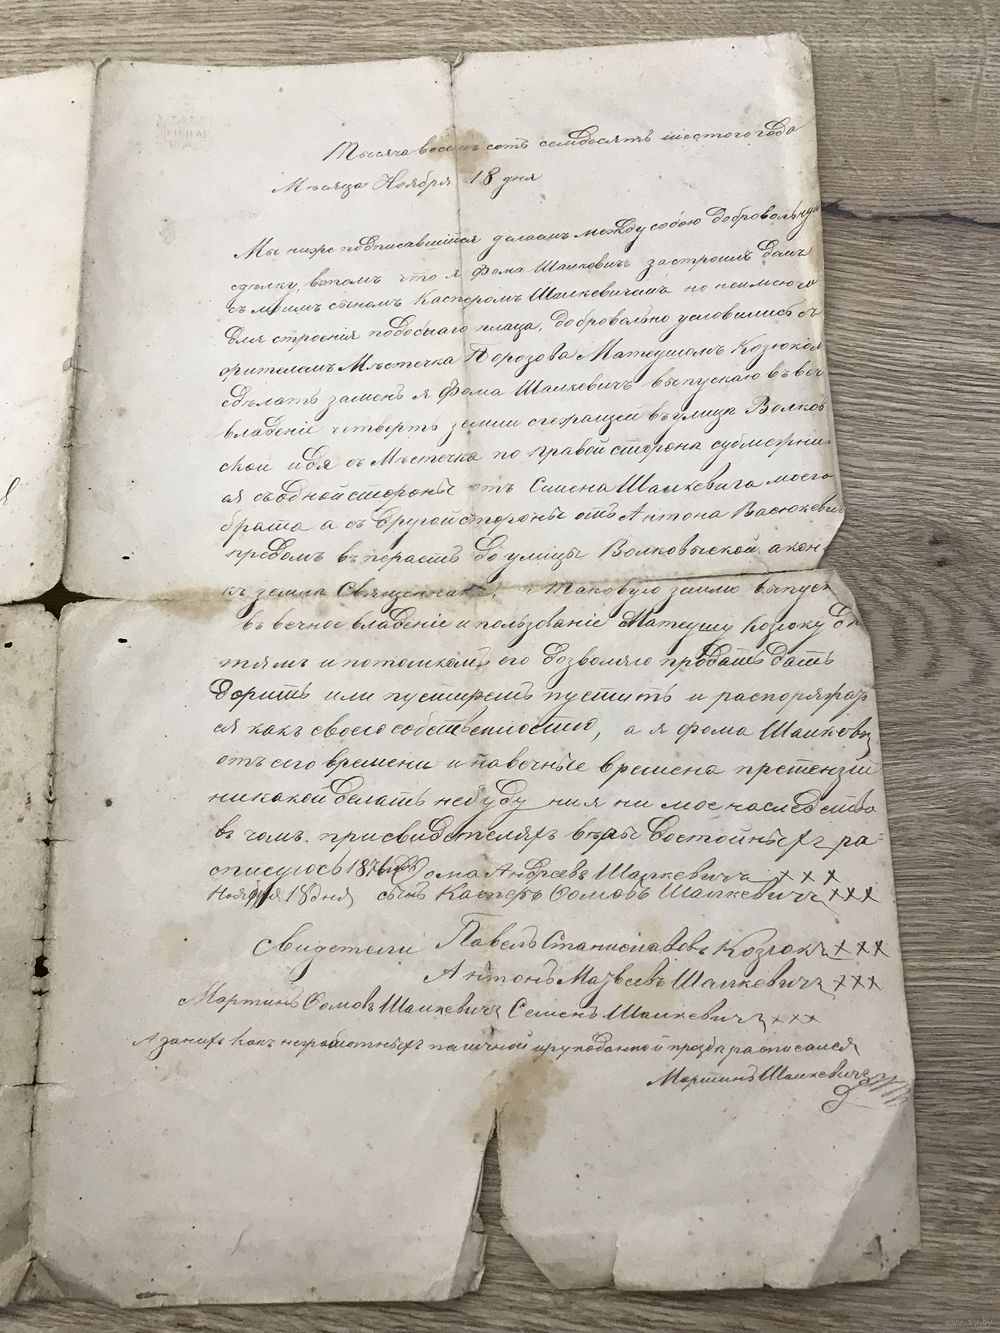 Тысяча восемь сотъ семдесятъ шестого года
Мѣсяца Ноября 18 дня
Мы ниже подписавшійся делаемъ между собою добровольную
сдѣлку, вътомъ что я Фома Шалкевичъ застроилъ домъ
съ моимъ сыномъ Касперомъ Шалкевичемъ но неимеюго
для строенія плаца, добровольно условились съ
жителемъ Мѣстечка Порозова Матеушомъ Козюкомъ
сдѣлать заменъ я Фома Шалкевичъ выпускаю въ веч
владеніе четверть земли лежащей въ улицѣ Волков
ской идя съ Мѣстечка по правой сторонѣ субмежни
ая съ одной стороны отъ Семена Шалкевича моего
брата а съ другой стороны отъ Антона Васюкевич
до улицы Волковыской а кон
къ земли Священника, таковую землю выпуск
въ вечное владеніе и пользованіе Матеушу Козюку дѣ
тямъ и потомкомъ его дозволяю продать дать
дорить или пустить и распоряжаъ
ся какъ своею собственностию, а я Фома Шалкевичъ
отъ сего времени и на вечные времена претензіи
никакой делать небуду ни я ни мое наследство
въ чомъ присвидетеляхъ въры достойныхъ ра=
списуюсь 1876 Фома Андреевъ Шалкевичъ ххх
Ноября 18 дня сынъ Касперъ Фомовъ Шалкевичъ ххх
Свидетели Павелъ Станиславовъ Козюкъ ххх
Антонъ Матвеевъ Шалкевичъ ххх
Мартинъ Фомовъ Шалкевичъ Семенъ Шалкевичъ ххх
А занихъ какъ неграмотныхъ поличной ирукоданной прозбѣ расписался
Мартинъ Шалкевичъ
www.ay.by